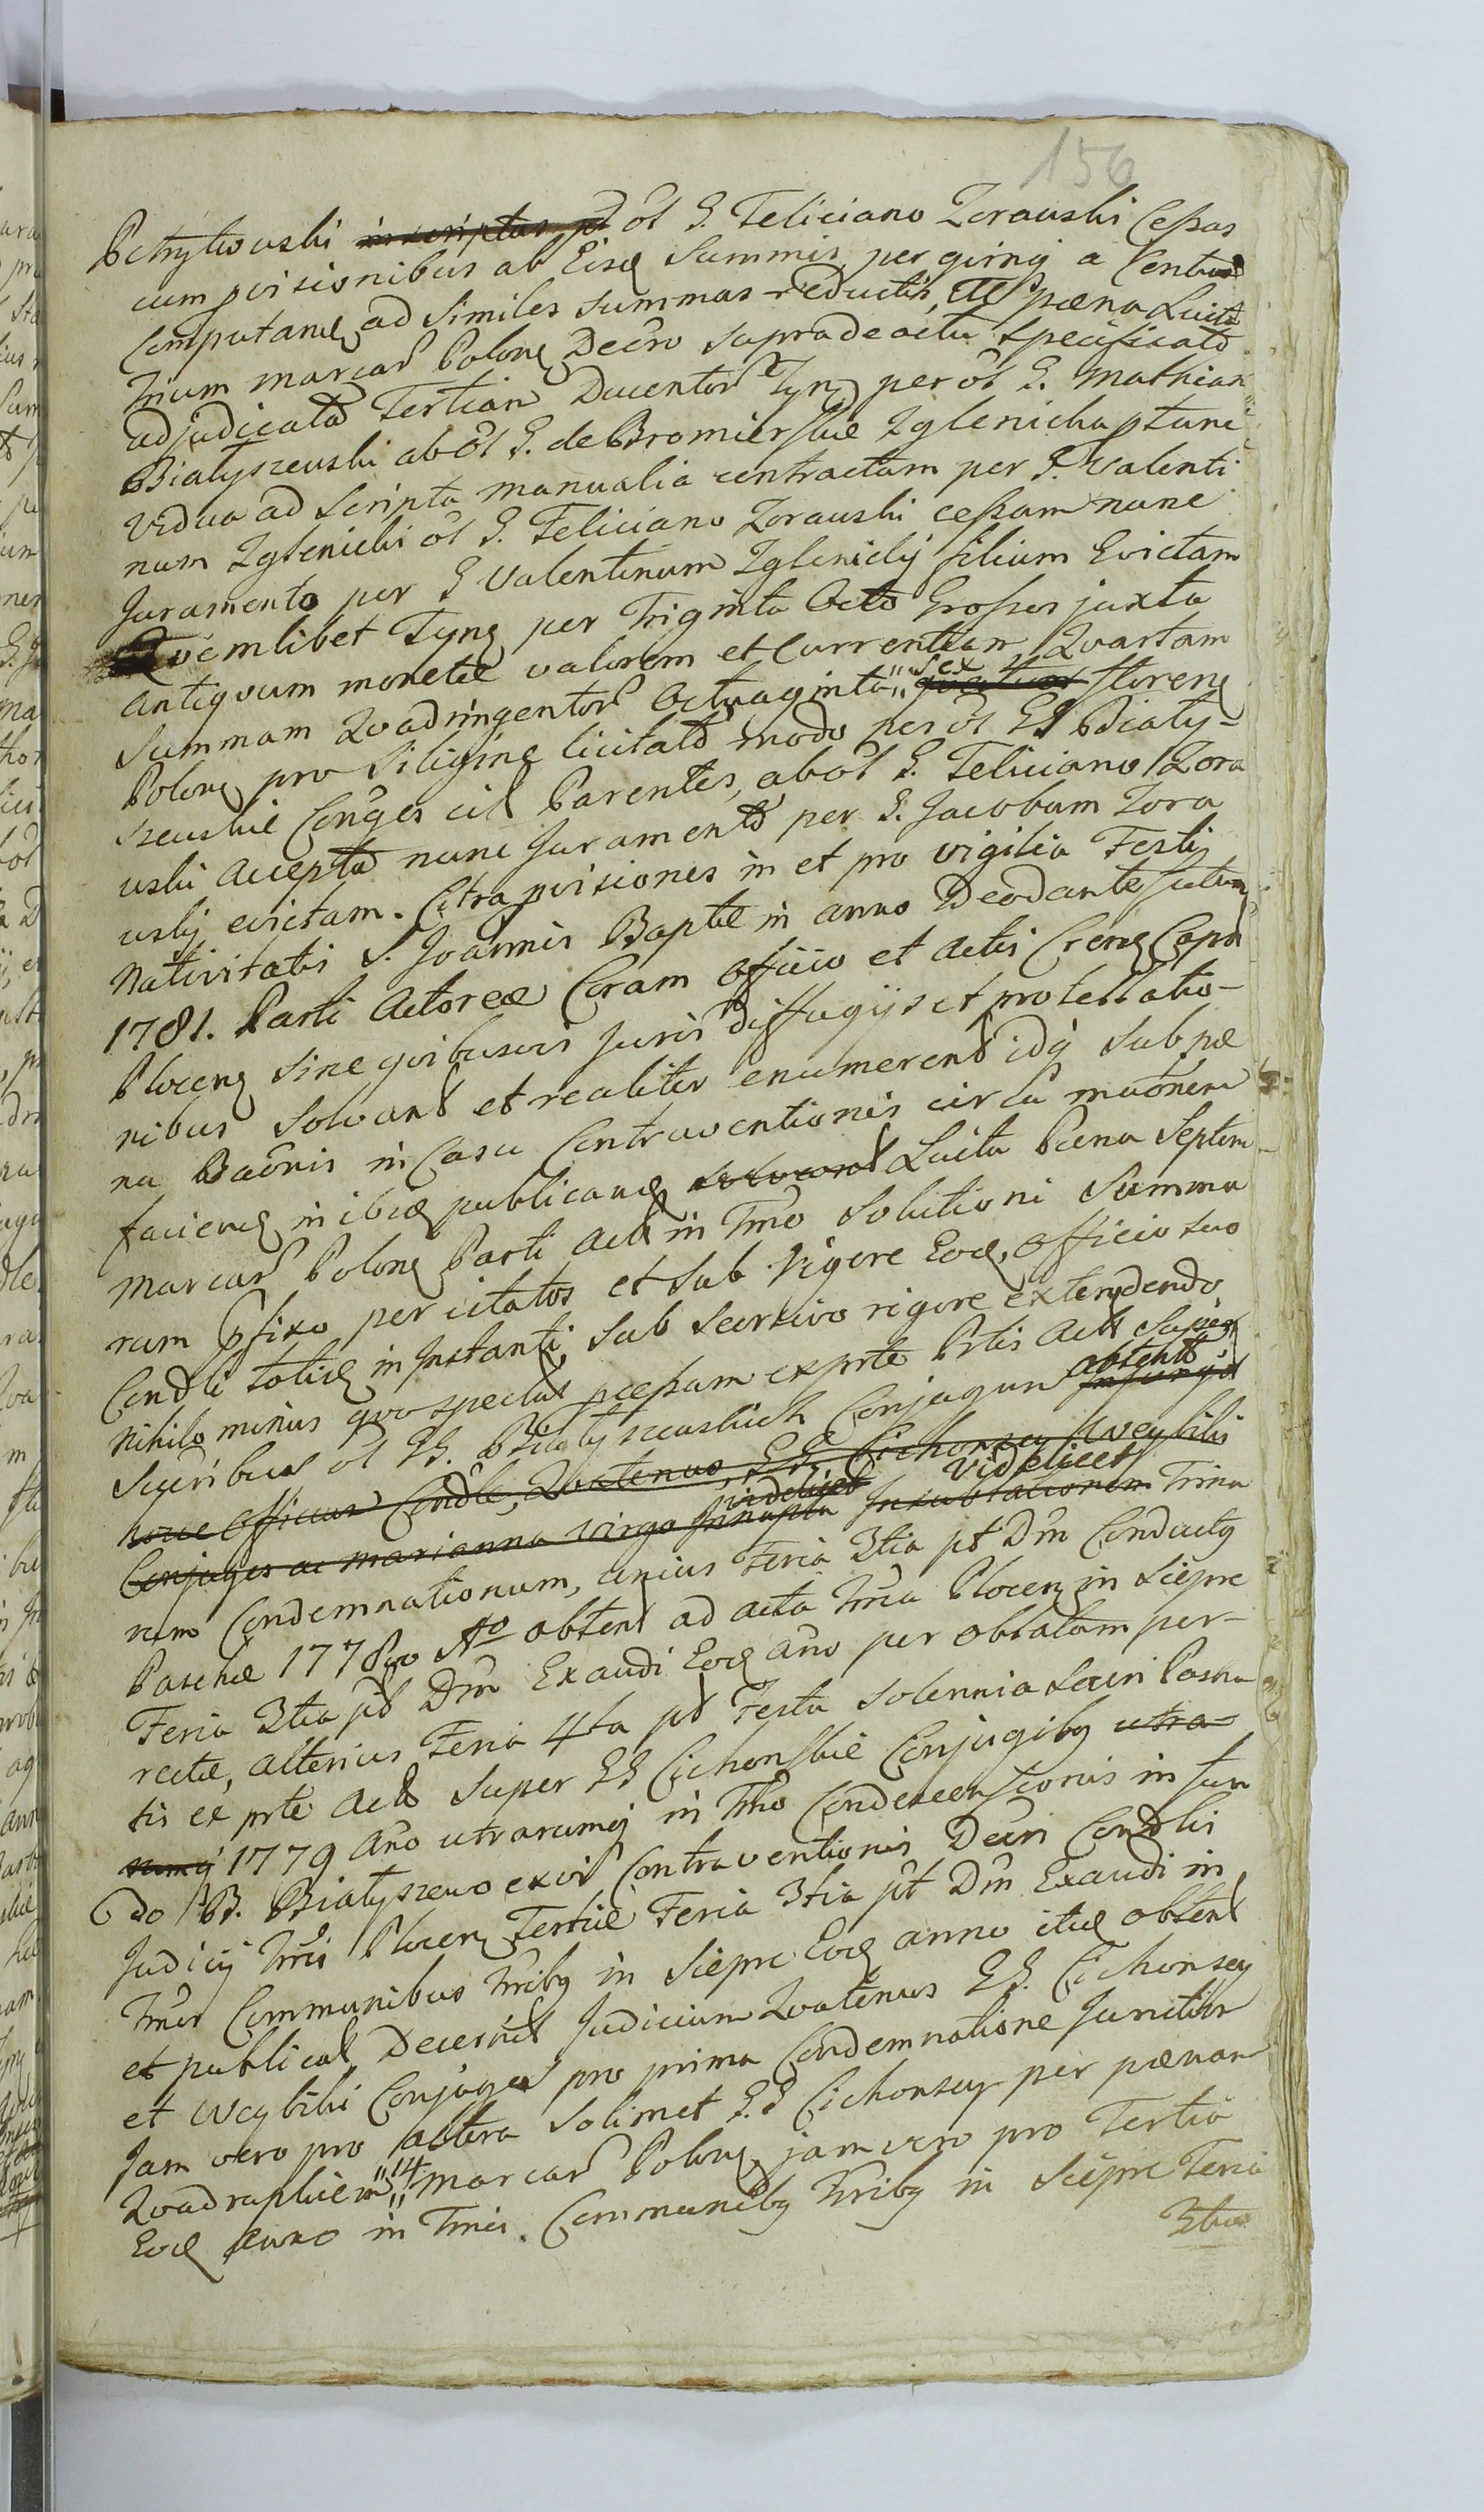 156
Petrykowski inscriptas pd ol G. Feliciano Zorawski Cessas
cum provisionibus ab Eisd Summis per girnij a Centu
Computand ad similes summas reductis, Ac paena Luita
trium marcar Polon Decro supradeactu specificato
adjudicata Tertiam Ducentor Tynf per ol G. Mathiam
Białyszewski ab ol G. de Bromierskie Zglenicka ptunc
vidua ad Scripta manualia contractam per G. Valenti
num Zglenicki ol G. Feliciano Zorawski cessam nunc
Juramento per G Valentinum Zglenicky filium Evictam
Quemlibet Tynf per Triginta Octo Grossos juxta
antiquum monetae valorem et Currentiam Quartam
Summam Quadringentor Octuaginta sex quatuor floren
Polon pro Siligine licitato modo per ol GG Biały-
szewskie Conges cil Parentes, ab ol G. Feliciano Zora
wski acceptam nunc Juramento per G. Jacobum Zora
wsky evictam. Citra provisiones in et pro vigilia Festi
Nativitatis S. Joannis Baptae in anno Deo dante futuro
1781. Parti Actoreae Coram Officio et Actis Cren Capn
Plocen sine quibusvis Juris diffugijs et protestatio-
nibus Solvant et realiter enumerent idq sub pae
na Baonis in Casu Contraventionis circa maonem
faciend in ibid publicand solvant Luita Paena Septem
marcar Polon Parti Act in Tmo Solutioni Summa
rum pfixo per citatos et sub Vigore Eod, Officio suo
Condli toties in Instanti, sub Secutivo rigore extendendo
Nihilo minus quo spectat pcessum ex prte Ptis Act Super
Sucribus ol GG. Białyszewskich Conjugum obtent Insurgit
hocce Officium Condle, Quatenus GG. Cichonscy Weybili
Conjuges ac marianna virgo Innupta videlicet Insublationem videlicet Trina
rum Condemnationum, unius Feria 3tia pt Dm Conductg
Paschae 1778vo Ao obtent ad acta Tmra Plocen in Siepre
Feria 3tia pt Dm Exaudi Eod ano per oblatam per-
rectae, alterius Feria 4ta pt Festa Solennia Sacri Pascha
tis ex prte Act Super GG Cichonskie Conjugibg utra-
rumq 1779 Ano utrarumq in Tmo Condescensionis in fun
do B. Białyszewo ex vi Contraventionis Decri Condlis
Judicij Tmris Plocen Tertiae Feria 3tia pt Dm Exaudi in
Tmis Communibus Tmribg in Siepre Eod anno itid obtent
et publicat Decernit Judicium Quatenus GG. Cichonscy
et Weybili Conjuges pro prima Condemnatione Junctim
Jam vero pro altera Solimet GG Cichonscy per paenam
Quadruplicem 14 marcar Polon, jam vero pro Tertia
Eod Anno in Tmis Communibg Tmribg in Siepre Feria
3tia